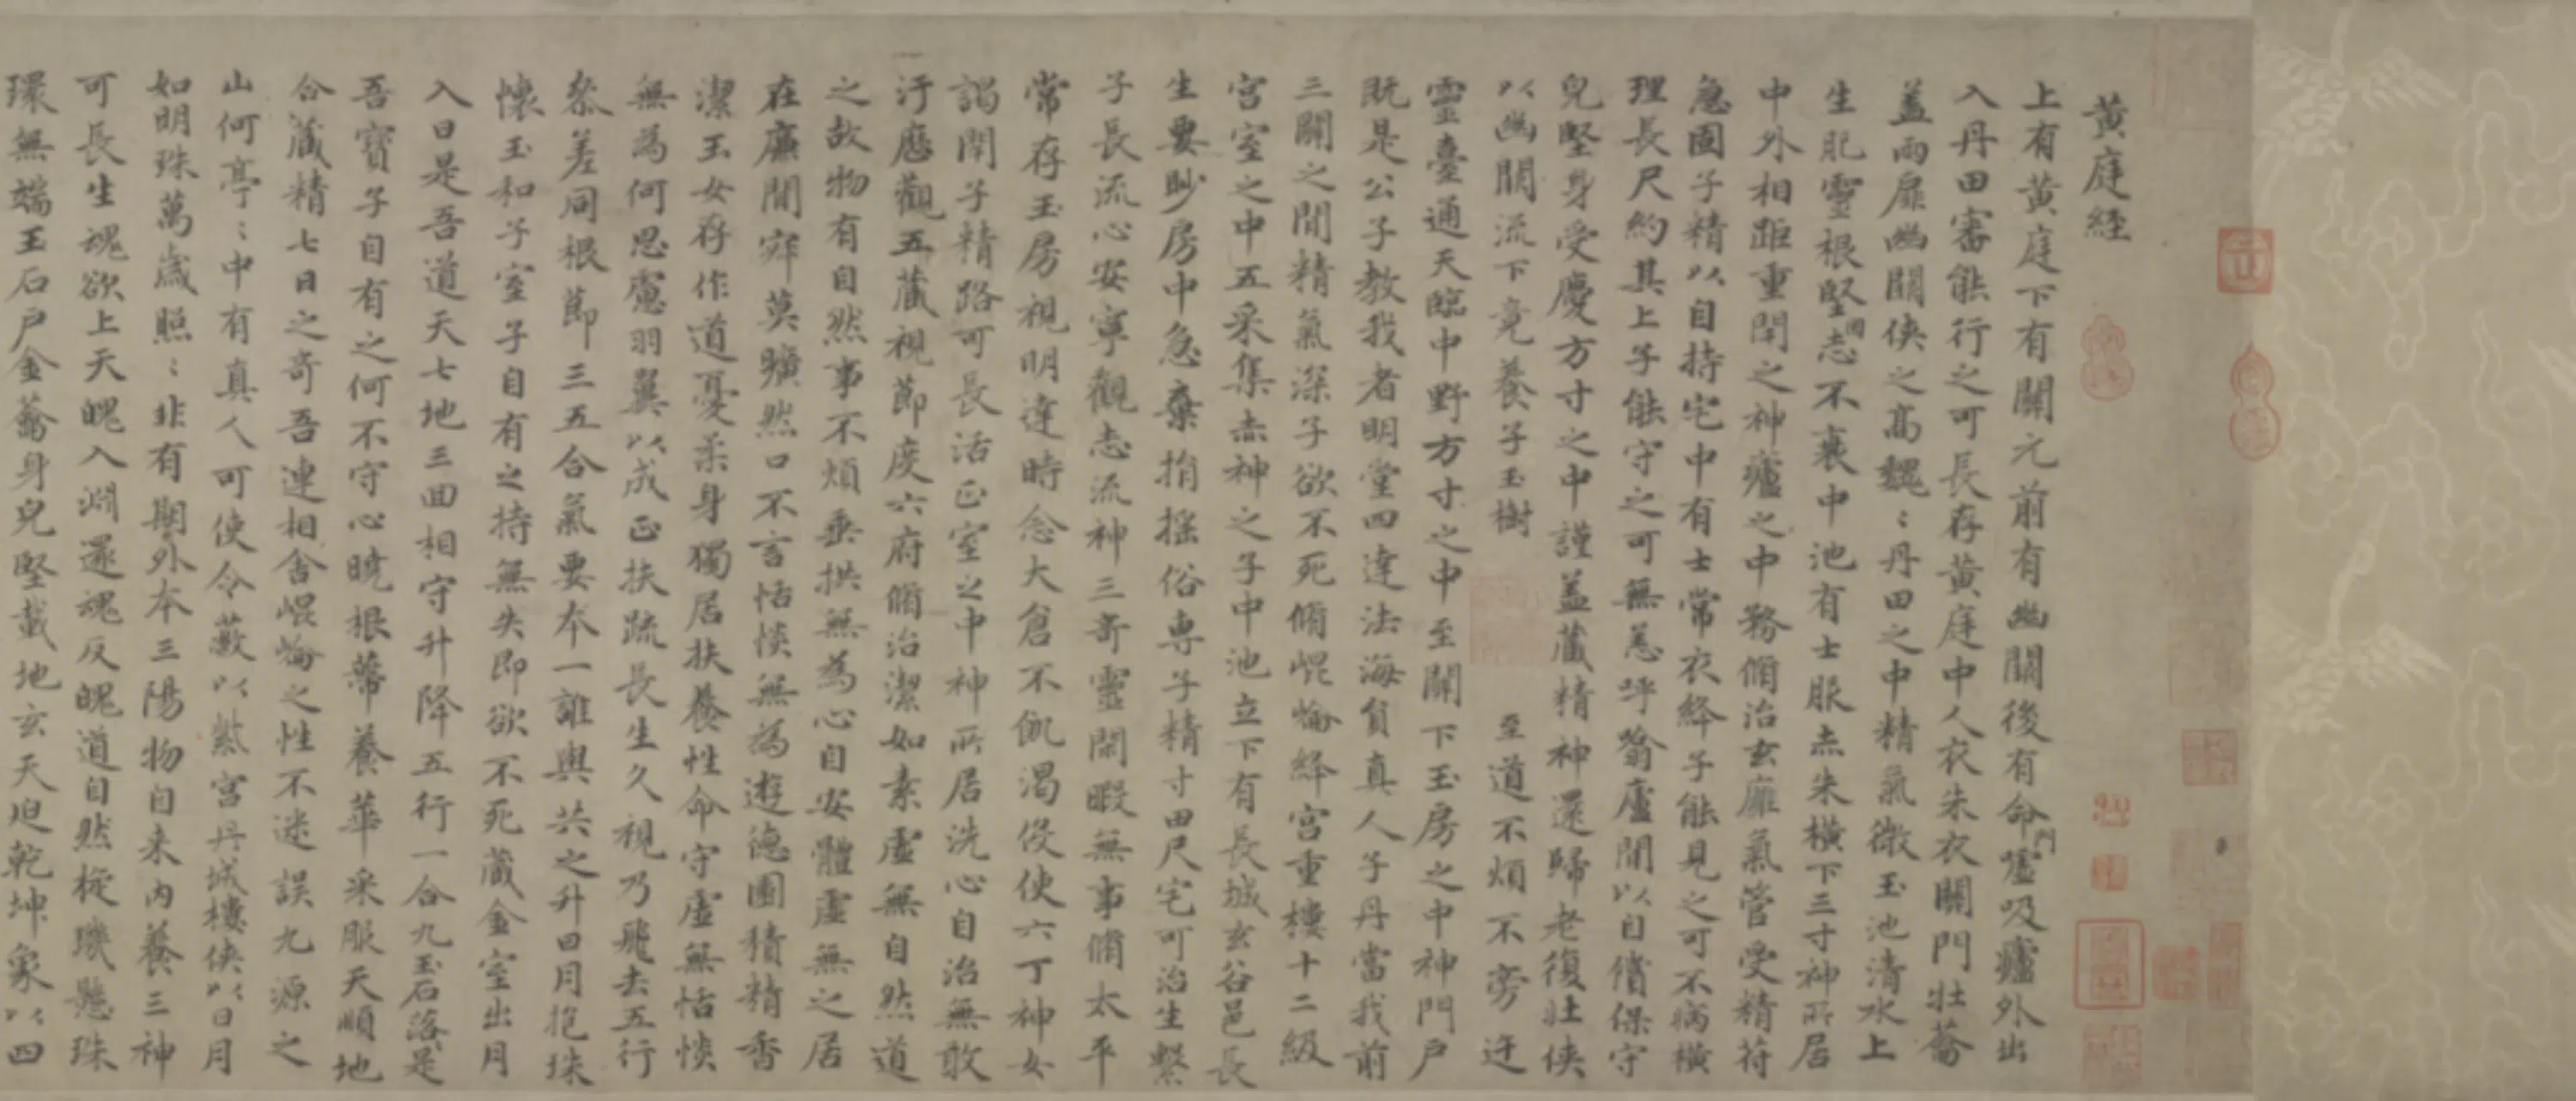 黃庭經
上有黃庭下有關元前有幽關後有命門噓吸廬外出
入丹田審能行之可長存黃庭中人衣朱衣關門壯蘥
蓋兩扉幽關俠之高巍〻丹田之中精氣微玉池清水上
生肥靈根堅固志不衰中池有士服赤朱橫下三寸神所居
中外相距重閉之神廬之中務脩治玄膺氣管受精苻
急固子精以自持宅中有士常衣絳子能見之可不病橫
理長尺約其上子能守之可無恙呼翕廬間以自償保守
皃堅身受慶方寸之中謹蓋藏精神還歸老復壯俠
以幽關流下竟養子玉樹 至道不煩不旁迕
靈臺通天臨中野方寸之中至關下玉房之中神門戶
既是公子教我者明堂四達法海負真人子丹當我前
三關之間精氣深子欲不死脩崐崘絳宮重樓十二級
宮室之中五采集赤神之子中池立下有長城玄谷邑長
生要眇房中急棄捐搖俗專子精寸田尺宅可治生繫
子長流心安寧觀志流神三奇靈閑暇無事脩太平
常存玉房視明達時念大倉不飢渴役使六丁神女
謁閉子精路可長活正室之中神所居洗心自治無敢
汙歷觀五藏視節度六府脩治潔如素虛無自然道
之故物有自然事不煩垂拱無為心自安體虛無之居
在廉間寂莫曠然口不言恬惔無為遊德園積精香
潔玉女存作道憂柔身獨居扶養性命守虛無恬惔
無為何思慮羽翼以成正扶疏長生久視乃飛去五行
叅差同根節三五合氣要本一誰與共之升日月抱珠
懷玉和子室子自有之持無失即欲不死藏金室出月
入日是吾道天七地三回相守升降五行一合九玉石落是
吾寶子自有之何不守心曉根蔕養華采服天順地
合藏精七日之奇吾連相舍崐崘之性不迷誤九源之
山何亭〻中有真人可使令蔽以紫宮丹城樓俠以日月
如明珠萬歲照〻非有期外本三陽物自来內養三神
可長生魂欲上天魄入淵還魂反魄道自然梴璣懸珠
環無端玉石戶金蘥身皃堅載地玄天迫乾坤象以四